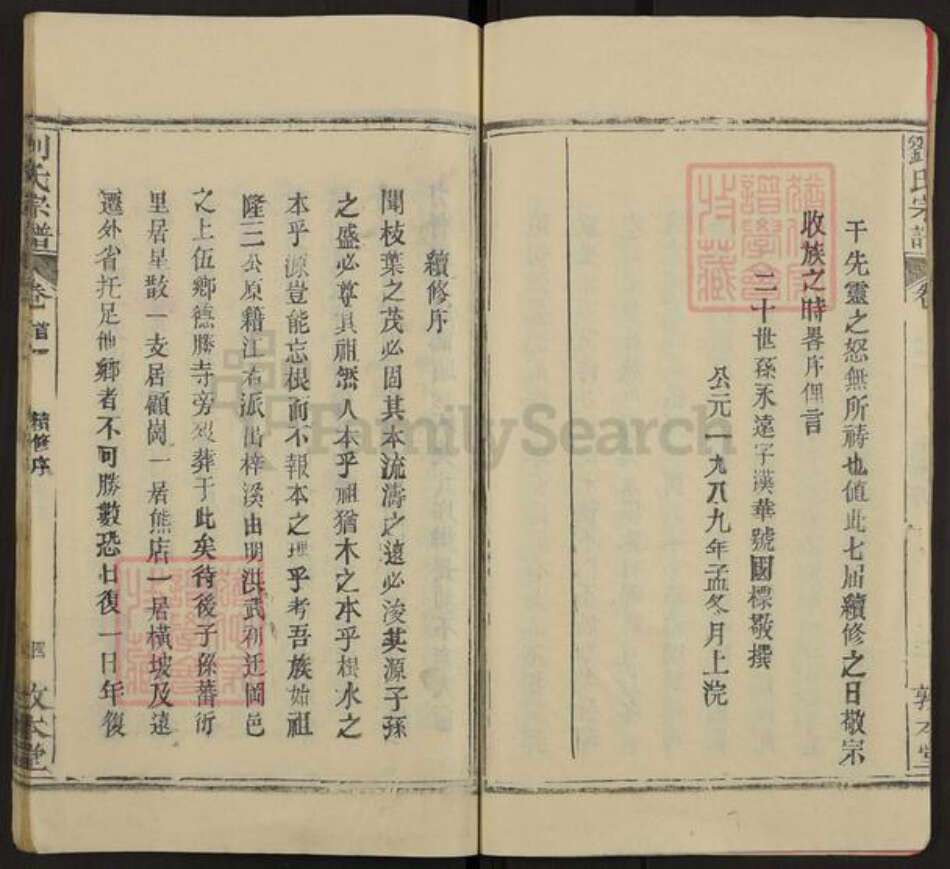 劉氏宗譜
卷
敦本堂
干先靈之怒無所禱也值此七届續修之日敬宗
收族之時畧序俚言
二十世孫永遠字漢華號國標敬撰
公元一九八九年孟冬月上浣
續修序
聞枝葉之茂必固其本流濤之遠必浚其源子孫
之盛必尊其祖然人本乎祖猶木之本乎根水之
本乎源豈能忘根而不報本之理乎考吾族始祖
隆三公原籍江右派出梓溪由明洪武初迁岡邑
之上伍鄉德勝寺旁歿葬于此矣待後子孫蕃衍
里居星散一支居顧崗一居熊店一居橫坡及遠
遷外省托足他鄉者不可勝數恐日復一日年復
劉氏宗譜
卷首一
續修序
四
敦本堂
譜學會
收藏
FamilySearch